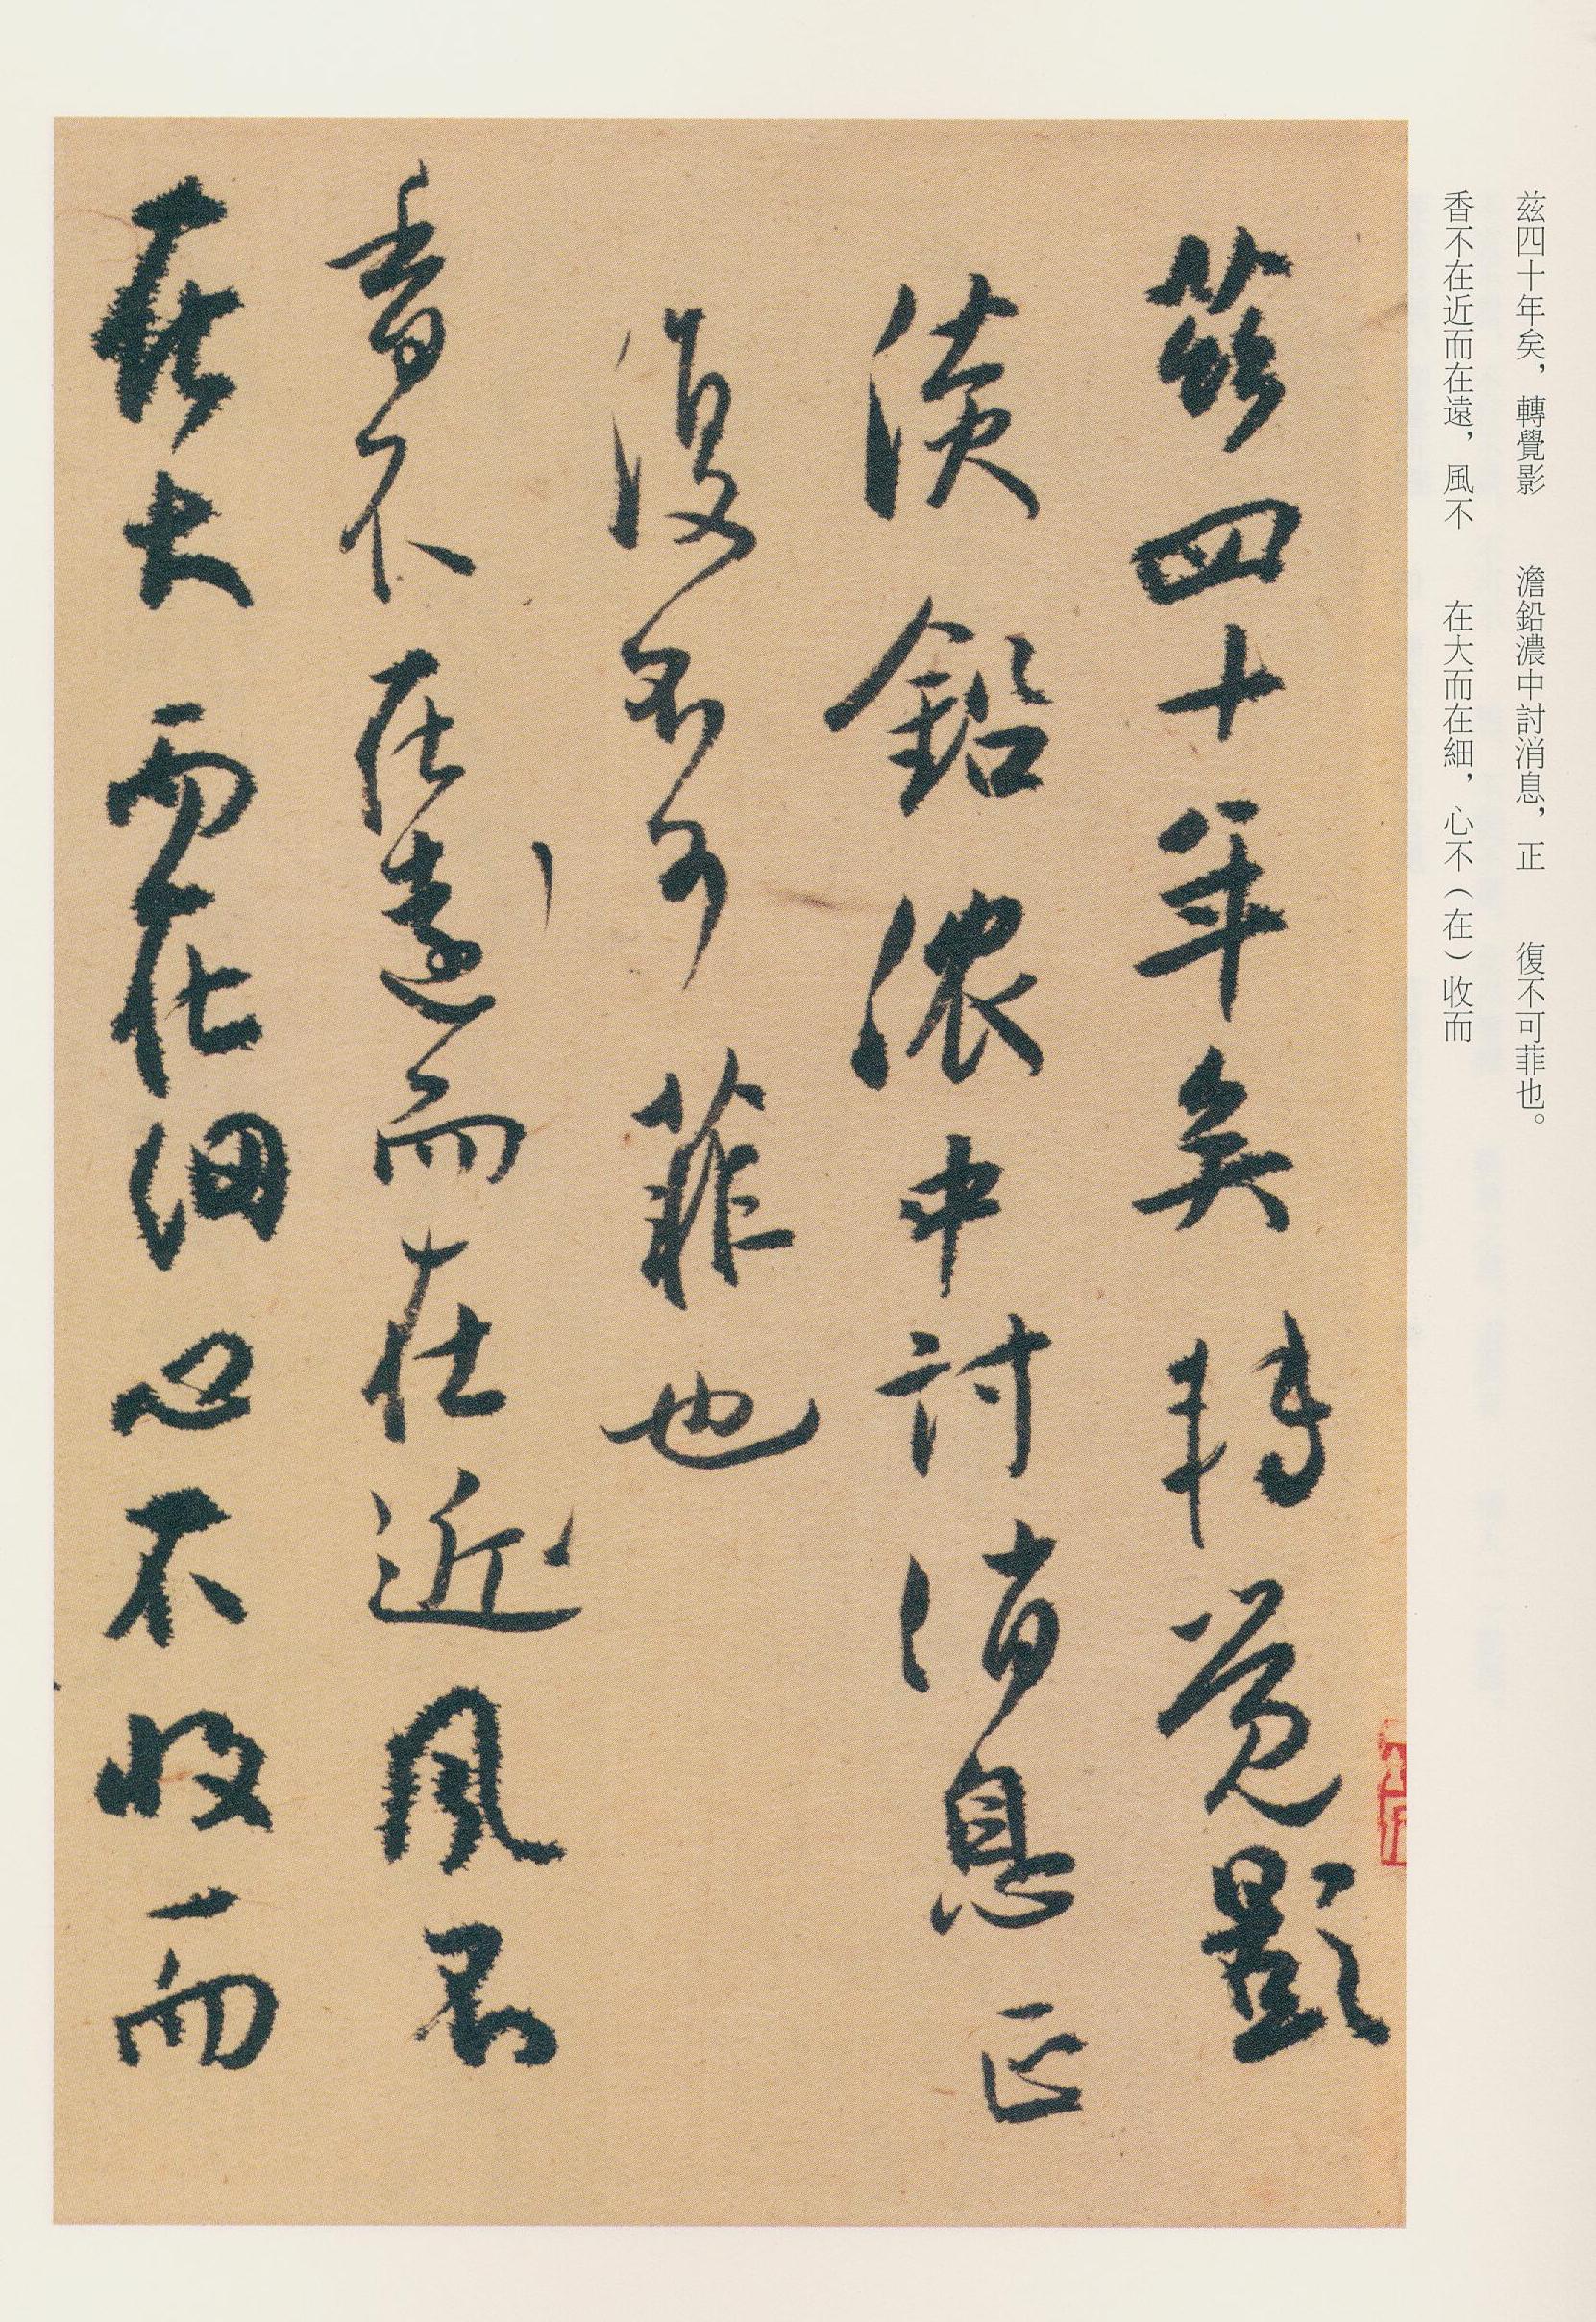 兹四十年矣，轉覺影　澹鉛濃中討消息，正　復不可菲也。
香不在近而在遠，風不　在大而在細，心不（在）收而
茲四十年矣轉覺影
淡鉛濃中討消息正
復不可菲也
香不在遠而在近風不
在大而在細心不收而